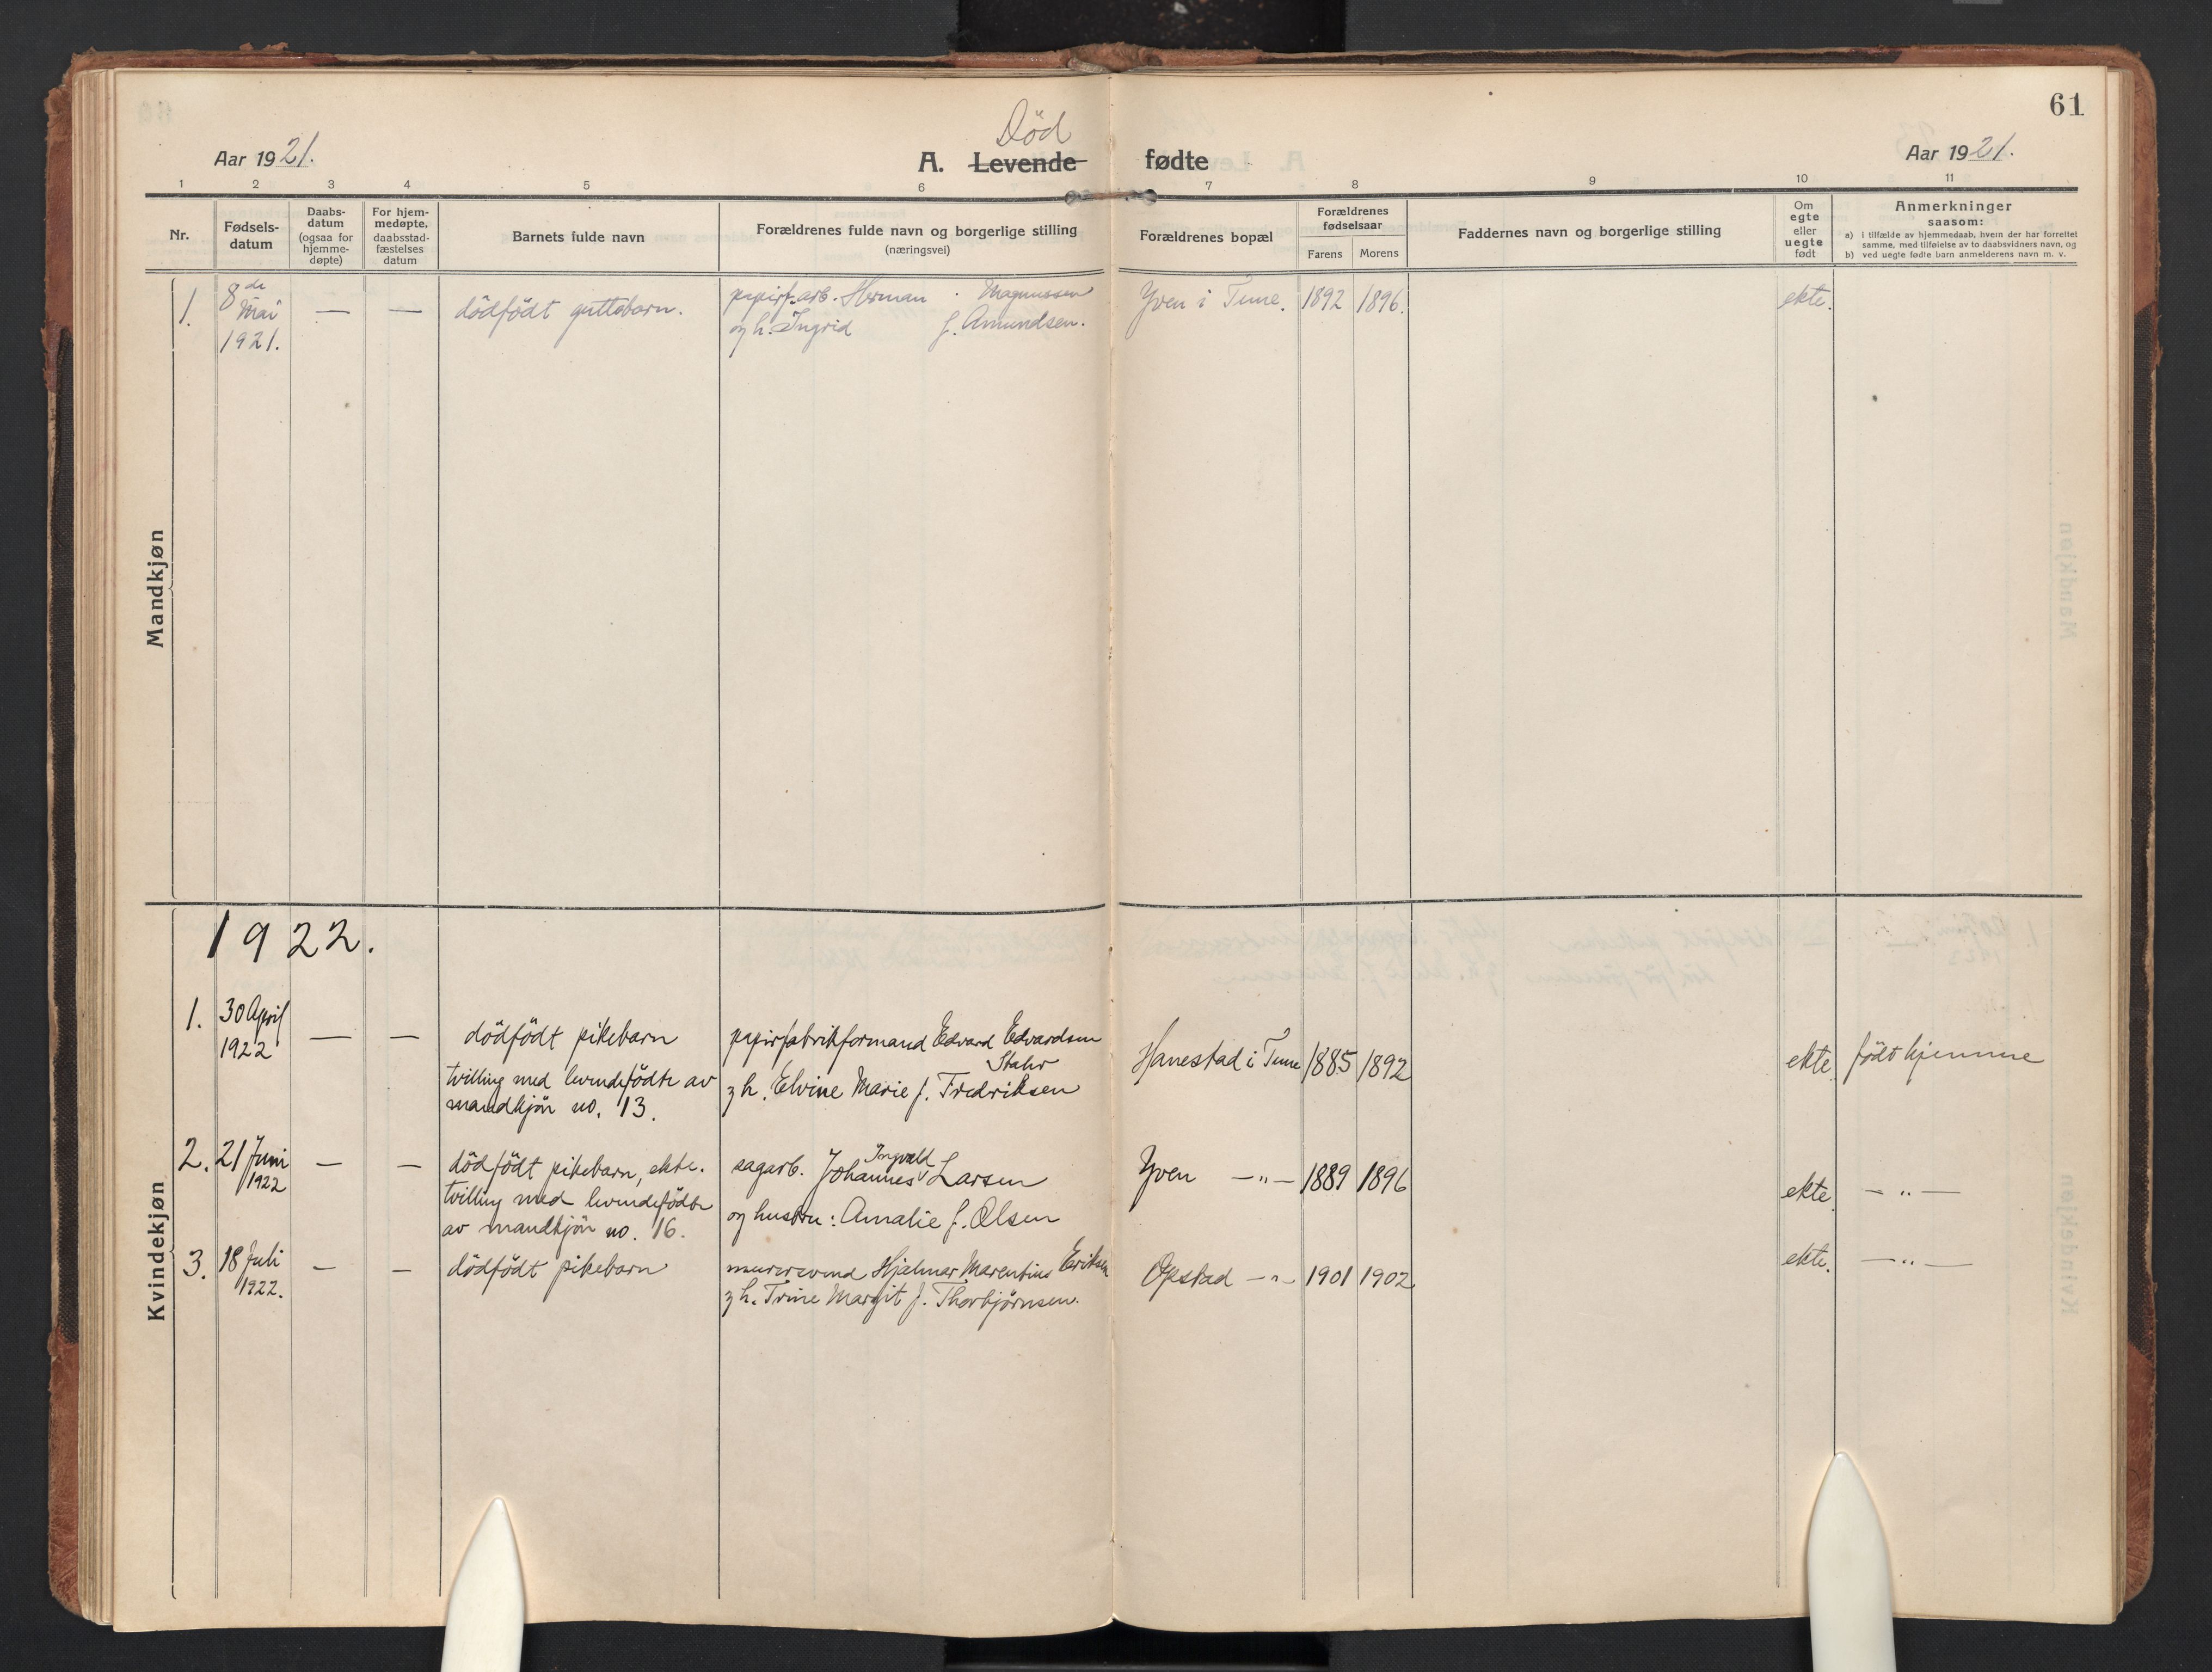 61
Død
Aar 1921. A. Levende fødte Aar 1921.
1 2 3 4 5 6 7 8 9 10 11
Nr.
Fødsels-
datum
Daabs-
datum
(ogsaa for
hjemme-
døpte)
For hjem-
medøpte,
daabsstad-
fæstelses
datum
Barnets fulde navn
Forældrenes fulde navn og borgerlige stilling
(næringsvei)
Forældrenes bopæl
Forældrenes
fødselsaar
Farens Morens
Faddernes navn og borgerlige stilling
Om
egte
eller
uegte
født
Anmerkninger
saasom:
a) i tilfælde av hjemmedaab, hvem der har forrettet
samme, med tilføielse av to daabsvidners navn, og
b) ved uegte fødte barn anmelderens navn m. v.
Mandkjøn
1.
8de
Mai
1921.
—
—
dödfödt guttebarn.
papirf.arb. Herman Magnussen
og h. Ingrid f. Amundsen.
Yven i Tune.
1892 1896.
ekte.
Kvindekjøn
1922.
1.
30 April
1922
—
—
dödfödt pikebarn
tvilling med levendefödte av
mandkjön no. 13.
papirfabrikformand Edvard Edvardsen
Stahr
og h. Elvine Marie f. Fredriksen
Hanestad i Tune
1885 1892
ekte.
födt hjemme
2.
21 Juni
1922
—
—
dödfödt pikebarn, ekte.
tvilling med levendefödte
av mandkjön no. 16.
Ingvald
sagarb. Johannes Larsen
og hustru: Amalie f. Olsen
Yven —„—
1889 1896
ekte.
—„—
3.
18 Juli
1922.
—
—
dödfödt pikebarn
murersvend Hjalmar Marentius Eriksen
og h. Trine Margit f. Thorbjörnsen.
Opstad —„—
1901 1902
ekte.
—„—